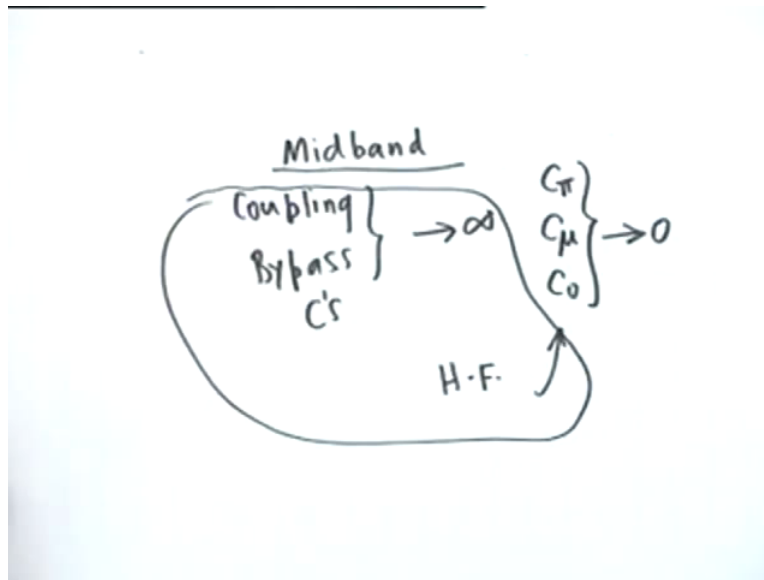 Midband
Coupling
Bypass
C's
→ ∞
Cπ
Cμ
C0
→ 0
H.F.